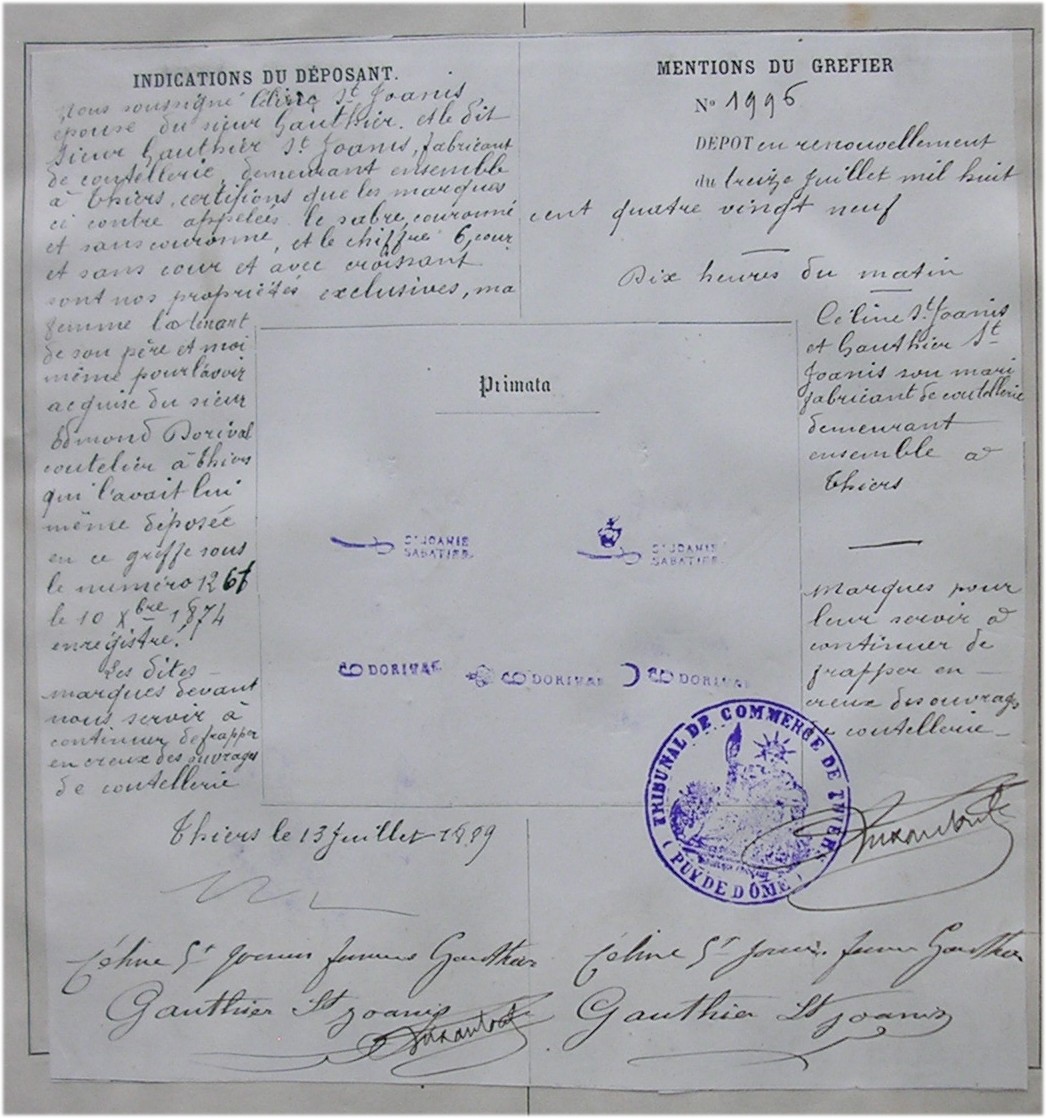 INDICATIONS DU DÉPOSANT.
Nous soussigné Céline St Joanis
épouse du sieur Gauthier. et le dit
sieur Gauthier St Joanis, fabricant
de coutellerie, demeurant ensemble
à Thiers, certifions que les marques
ci contre appelées le sabre, couronné
et sans couronne, et le chiffre 6, cour
et sans cour et avec croissant
sont nos propriétés exclusives, ma
femme la tenant
de son père et moi
même pour l'avoir
acquise du sieur
Edmond Dorival
coutelier à Thiers
qui l'avait lui
même déposée
en ce greffe sous
le numéro 126
le 10 Xbre 1874
enregistré.
Les dites
marques devant
nous servir à
continuer de frapper
en creux des ouvrages
de coutellerie
Thiers le 13 Juillet 1889
MENTIONS DU GREFIER
No 1996
DEPOT en renouvellement
du treize Juillet mil huit
cent quatre vingt neuf
Dix heures du matin
Céline St Joanis
et Gauthier St
Joanis son mari
fabricant de coutellerie
demeurant
ensemble à
Thiers
marques pour
leur servir à
continuer de
frapper en
creux des ouvrages
de coutellerie
Primata
ST JOANIS
SABATIER
ST JOANIS
SABATIER
6 DORIVAL
6 DORIVAL
6 DORIVAL
TRIBUNAL DE COMMERCE DE THIERS
(PUY DE DÔME)
Céline St Joanis femme Gauthier
Gauthier St Joanis
Céline St Joanis femme Gauthier
Gauthier St Joanis